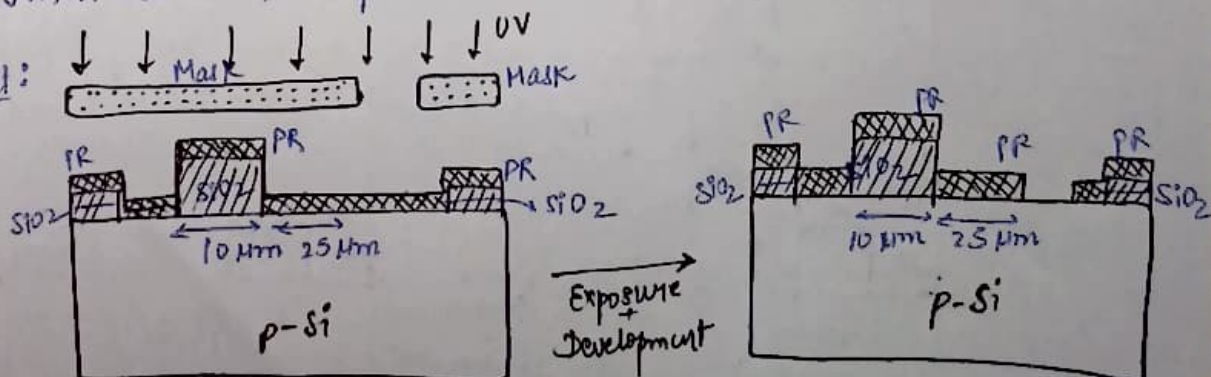 UV
Mask
Mask
PR
PR
PR
SiO2
SiO2
SiO2
10 μm
25 μm
p-Si
Exposure
+
Development
PR
PR
PR
PR
SiO2
SiO2
10 μm
25 μm
p-Si